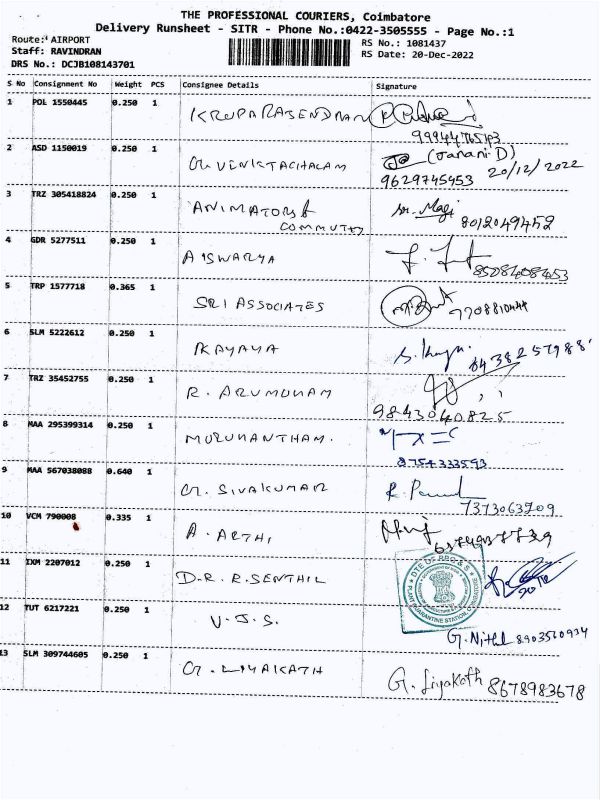 THE PROFESSIONAL COURIERS, Coimbatore
Delivery Runsheet - SITR - Phone No.:0422-3505555 - Page No.:1
Route: AIRPORT RS No.: 1081437
Staff: RAVINDRAN RS Date: 20-Dec-2022
DRS No.: DCJB108143701
S No Consignment No Weight PCS Consignee Details Signature
1 POL 1550445 0.250 1 KRUPARAJENDRAN
2 ASD 1150019 0.250 1 G. VENKTACHALAM (Janani D)
9629745453 20/12/2022
3 TRZ 305418824 0.250 1 ANIMATORS &
COMMUTES 8012049452
4 GDR 5277511 0.250 1 AISWARYA
8508408453
5 TRP 1577718 0.365 1 SRI ASSOCIATES
6 SLM 5222612 0.250 1 KAYAYA
8438257988
7 TRZ 35452755 0.250 1 R. ARUMUHAM
9843040825
8 MAA 295399314 0.250 1 MURUHANTHAM.
8754333593
9 MAA 567038088 0.640 1 G. SIVAKUMAR
7373063709
10 VCM 790008 0.335 1 A. ARTHI
11 IXM 2207012 0.250 1 D.R. R. SENTHIL
12 TUT 6217221 0.250 1 V.J.S.
G. Nithil 8903560934
13 SLM 309744605 0.250 1 G. LIYAKATH G. Liyakath 8678983678